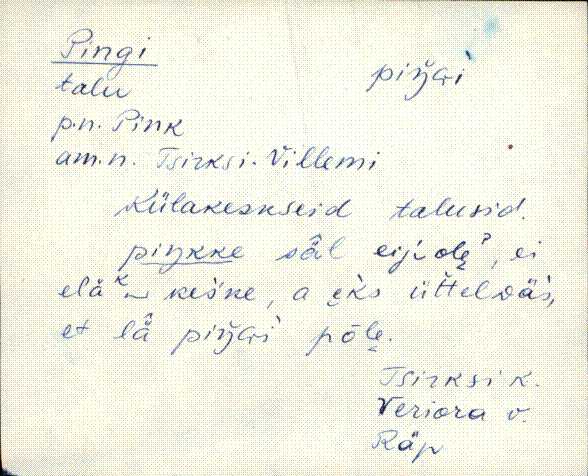 Pingi
piŋɢì
talu
p.n. Pink
am.n. Tsirksi-Villemi
Külakeskseid talusid.
piŋkke sā̂l eij olȩˀ, ei
elä ᴷ keśke, a ȩks üťteldäs,
et lä̂ piŋɢì pōlȩ.
Tsirksi k.
Veriora v.
Räp